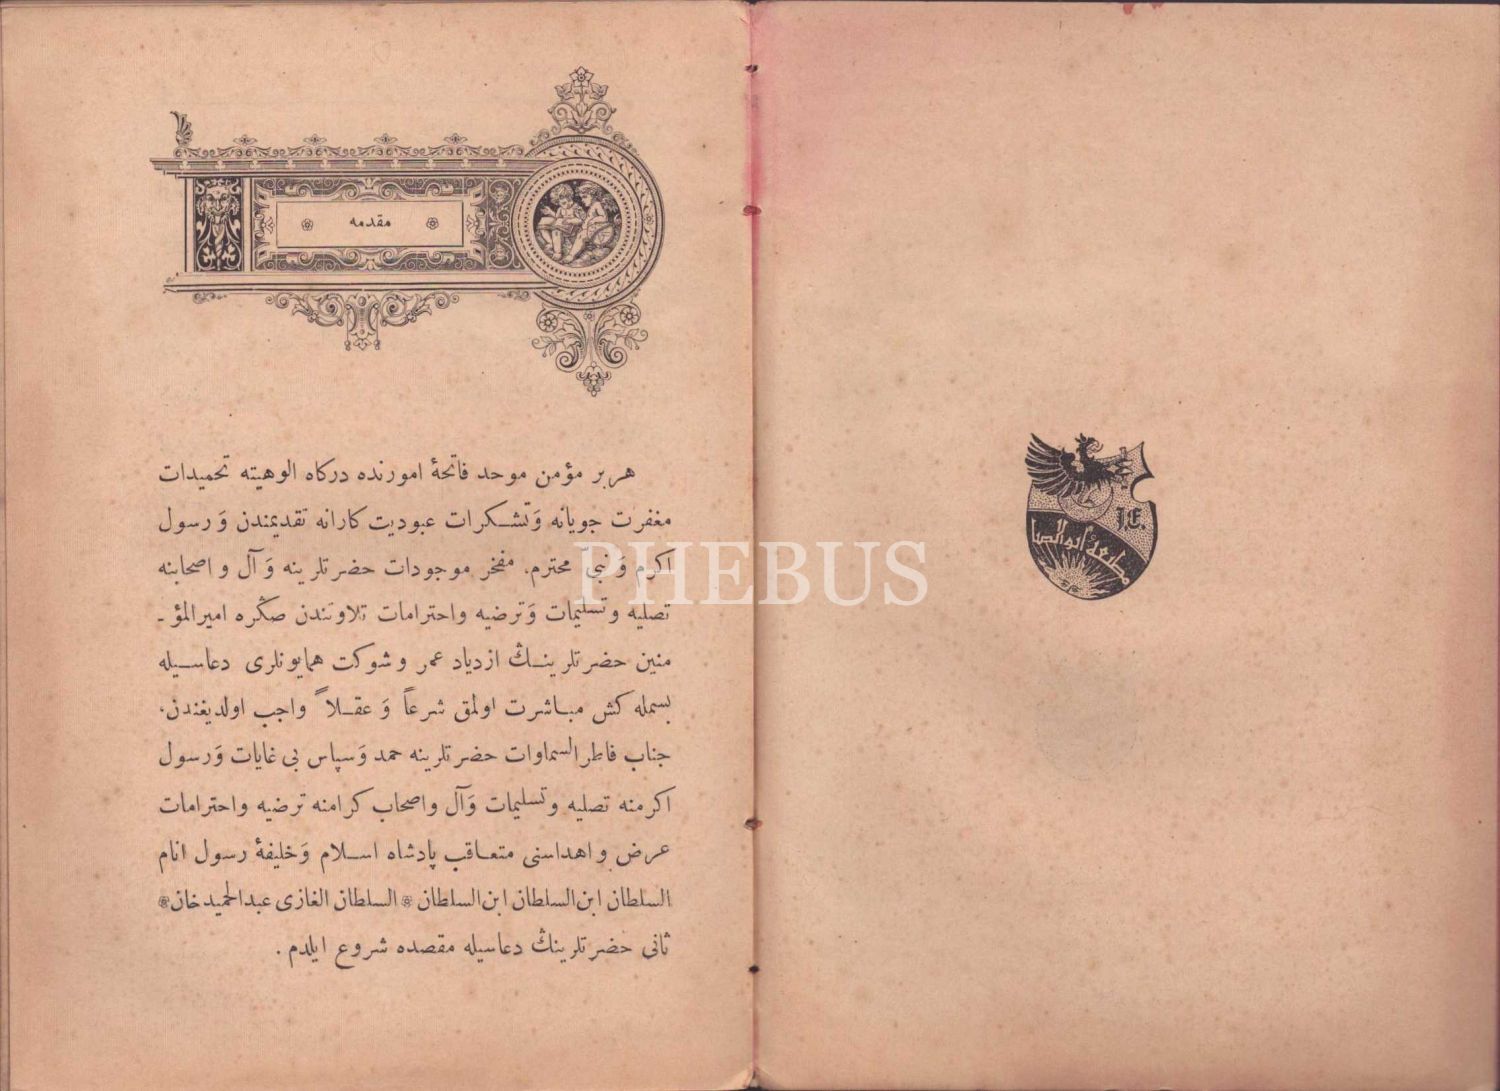 مطبعهٔ ابوالضیا
J.E.
مقدمه
هر بر مؤمن موحد فاتحهٔ امورنده درکاه الوهیته تحمیدات
مغفرت جویانه وَتشکرات عبودیت کارانه تقدیمندن وَرسول
اکرم وَنبیّ محترم، مفخر موجودات حضرتلرینه وَآل و اصحابنه
تصلیه وتسلیمات وَترضیه واحترامات تلاوتندن صڭره امیرالمؤ ـ
منین حضرتلرینـڭ ازدیاد عمر وشوکت همایونلری دعاسیله
بسمله کش مباشرت اولمق شرعاً وَ عقلاً واجب اولدیغندن،
جناب فاطرالسماوات حضرتلرینه حمد وَسپاس بی غایات وَرسول
اکرمنه تصلیه وتسلیمات وَآل واصحاب کرامنه ترضیه واحترامات
عرض واهداسنی متعاقب پادشاه اسلام وَخلیفهٔ رسول انام
السلطان ابن السلطان ابن السلطان * السلطان الغازی عبدالحمید خان *
ثانی حضرتلرینڭ دعاسیله مقصده شروع ایلدم .
PHEBUS